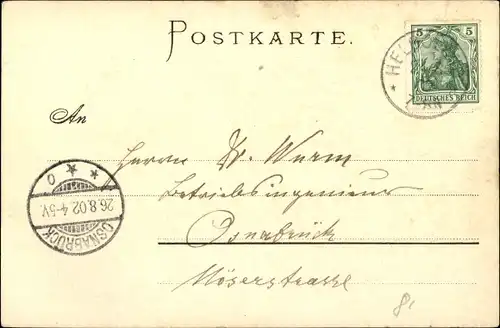 POSTKARTE.
5 5
DEUTSCHES REICH
* HEL
An
Herrn W. Wurm
Betriebsingenieur
26.8.02.4-5V.
OSNABRÜCK
Osnabrück
Möserstrasse
8.